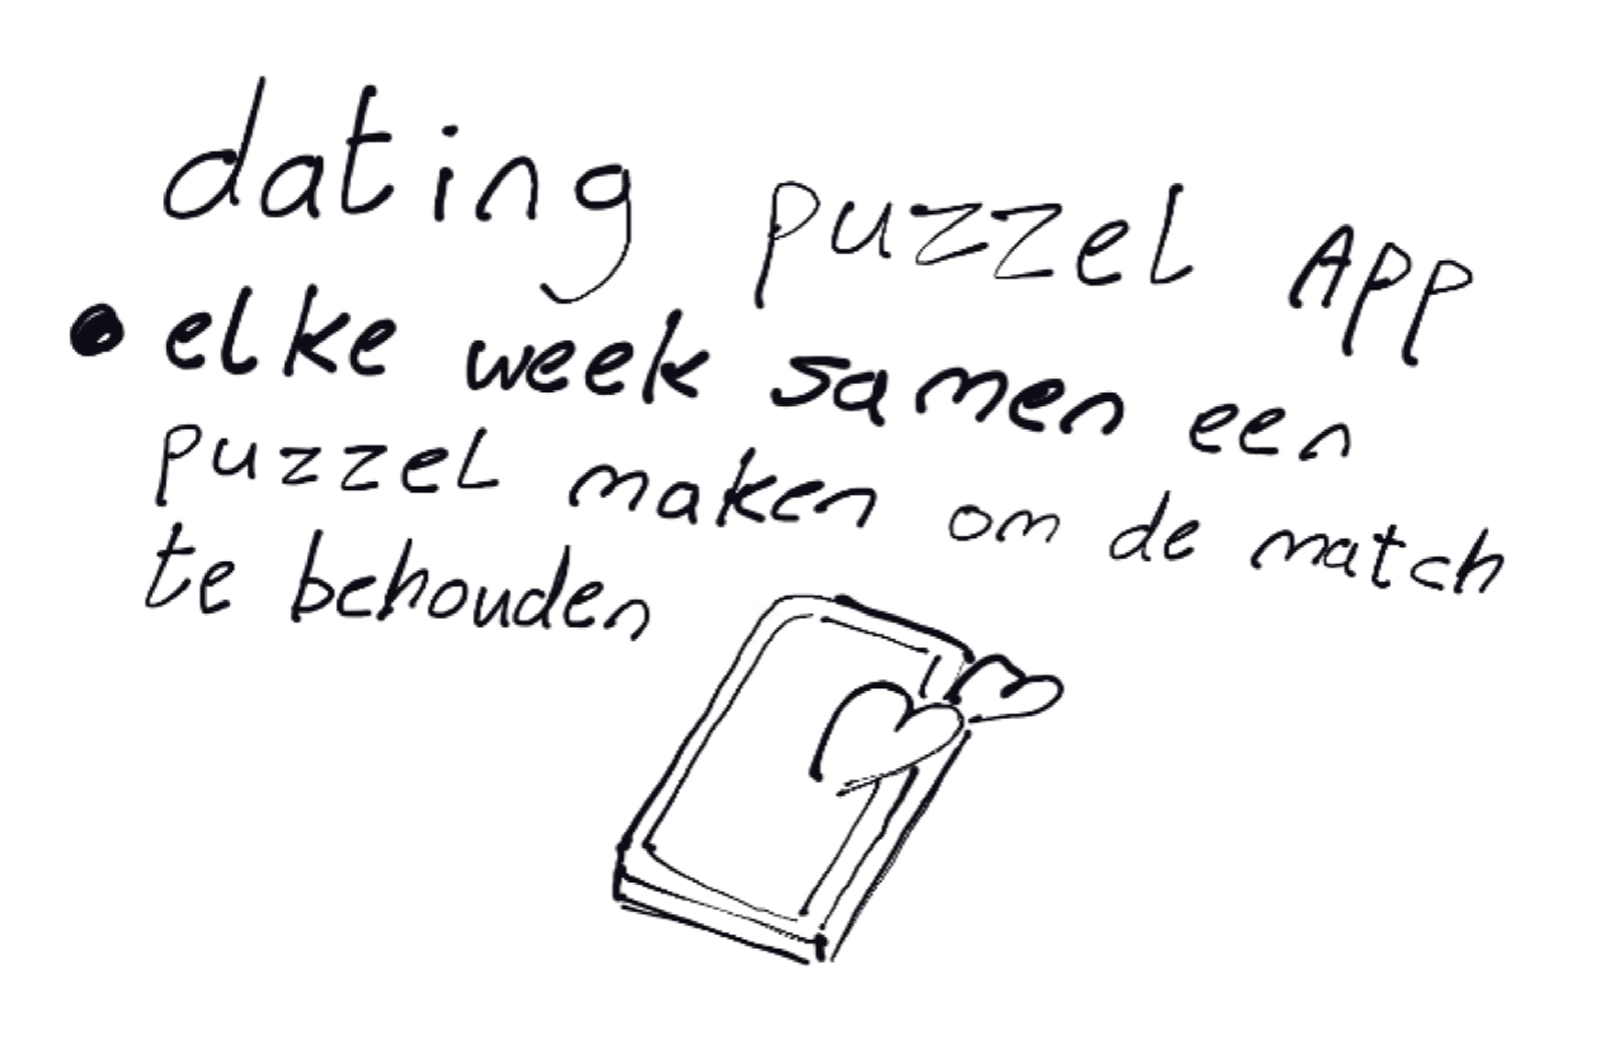 dating puzzel App
• elke week samen een
puzzel maken om de match
te behouden